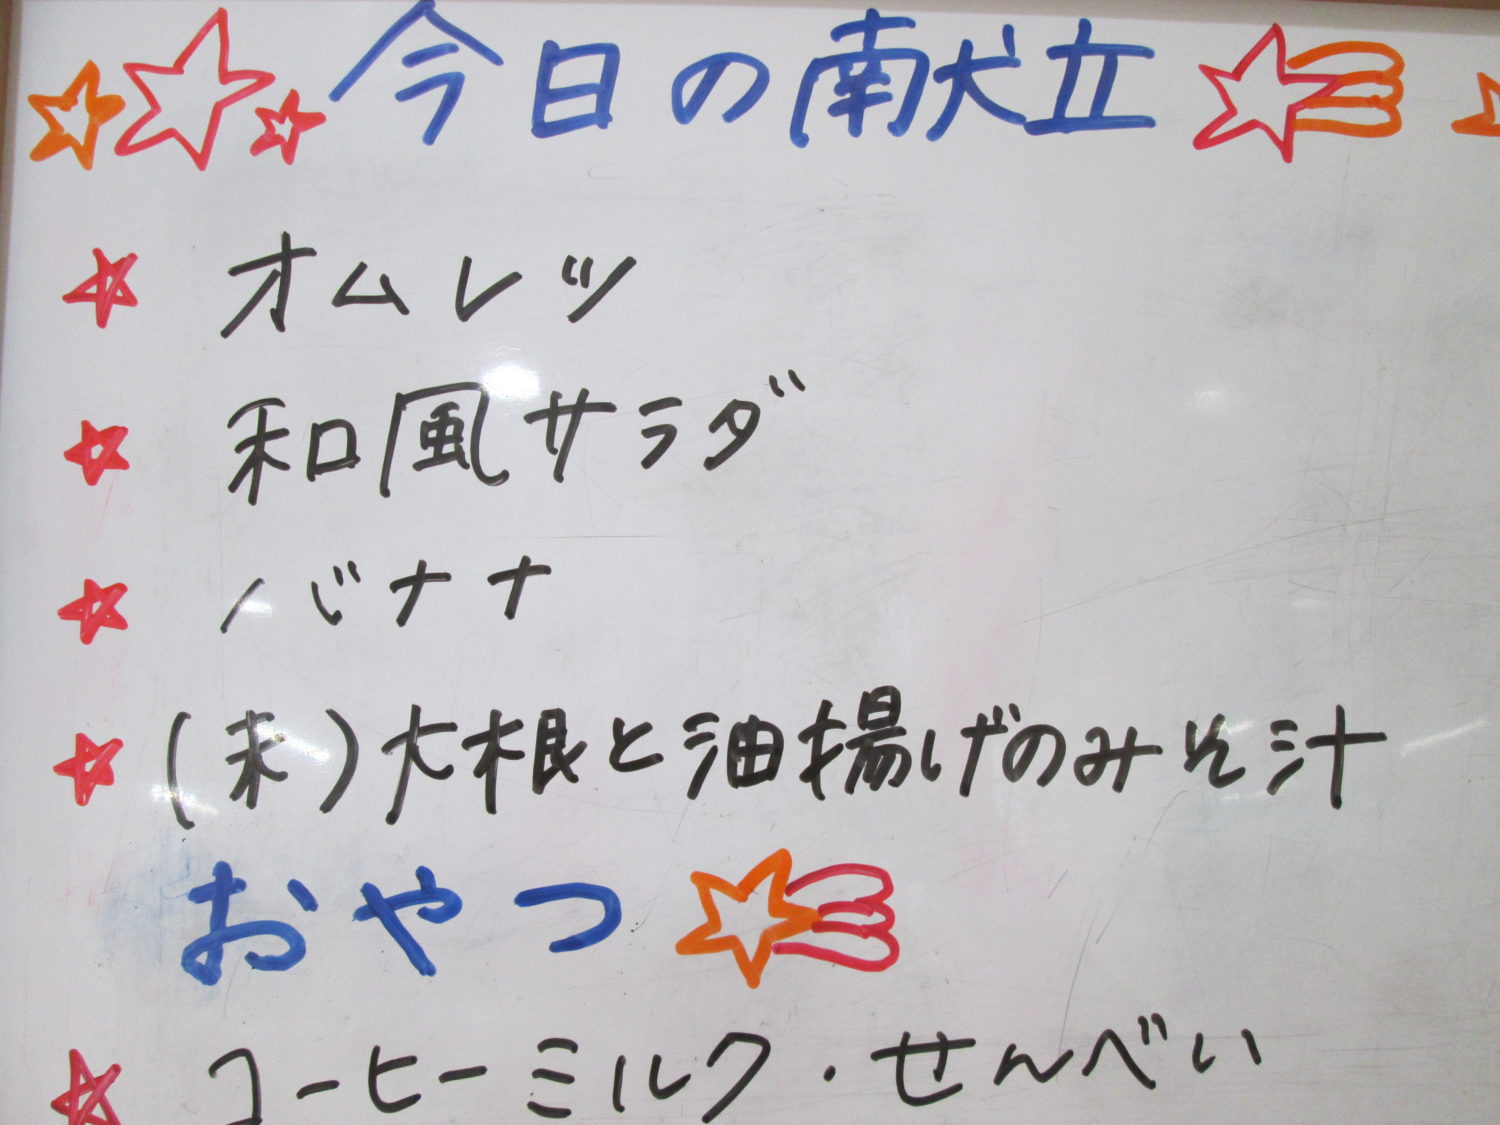 今日の献立
オムレツ
和風サラダ
バナナ
(未)大根と油揚げのみそ汁
おやつ
コーヒーミルク・せんべい